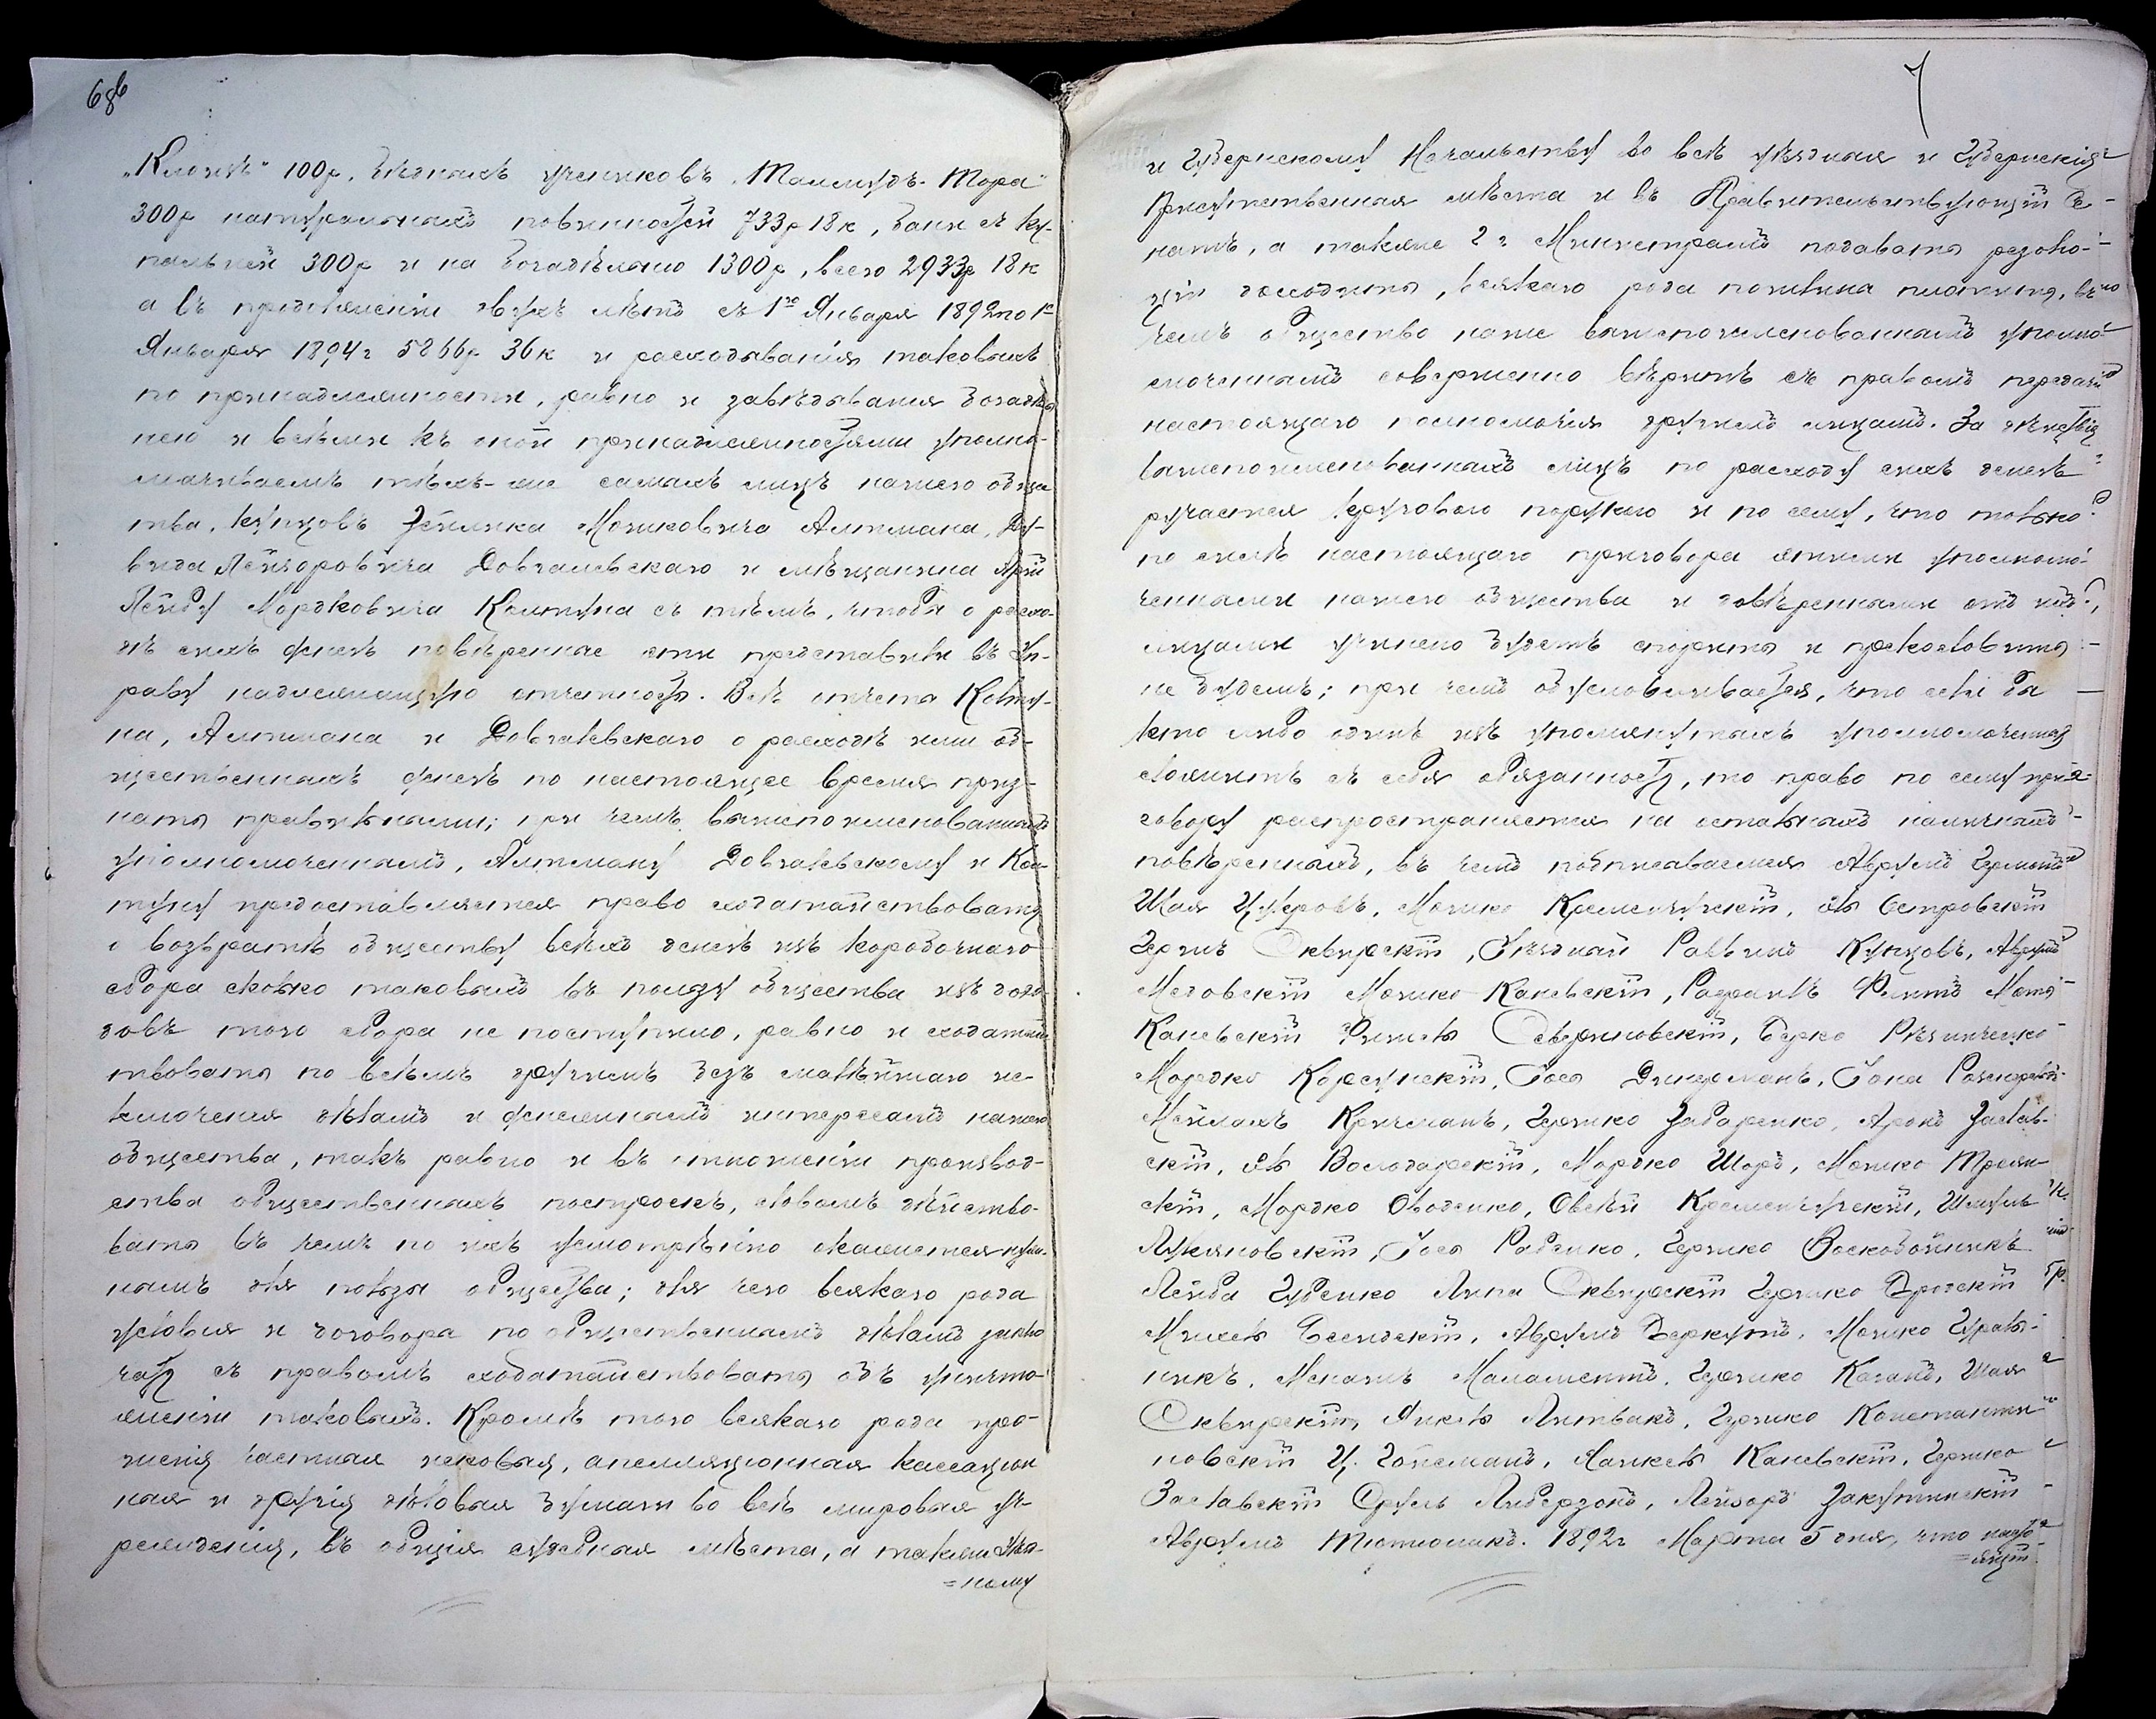 6об
„Клозкъ" 100р. бѣдныхъ учениковъ „Талмудъ-Тора"
300р натуральныхъ повинностей 733р 18к, бани съ ку-
пальней 300р и на богадѣльню 1300р, всего 2933р 18к
а въ продолженіи двухъ лѣтъ съ 1го Января 1892 по 1е
Января 1894г 5866р 36к и расходыванія таковыхъ
по принадлежности, равно и завѣдыванія богадѣль
нею и всѣми къ оной принадлежностями уполно-
мачиваемъ тѣхъ-же самыхъ лицъ нашего общес
тва, купцовъ Зейлика Мошковича Алтмана, Ду-
вида Лейзоровича Довгалевскаго и мѣщанина Арiи
Лейбу Мордковича Колтуна съ тѣмъ, чтобы о расхо-
дѣ сихъ денегъ повѣренные эти представили въ Уп-
раву надлежащую отчетность. Всѣ отчеты Колту-
на, Алтмана и Довгалевскаго о расходѣ ими об-
щественныхъ денегъ по настоящее время приз-
наны правильными; при чемъ вышепоименованнымъ
уполномоченнымъ, Алтману Довгалевскому и Кол-
туну предоставляется право ходатайствовать
о возвратѣ обществу всѣхъ денегъ изъ коробочнаго
сбора сколько таковыхъ въ пользу общества изъ дохо-
довъ того сбора не поступило, равно и ходатайс
твовать по всѣмъ другимъ безъ малѣйшаго ис-
ключенія дѣламъ и денежнымъ интересамъ нашего
общества, такъ равно и въ отношеніи производ-
ства общественныхъ построекъ, словомъ дѣйство-
вать въ чемъ по ихъ усмотрѣнію окажется нуж-
нымъ для пользы общества; для чего всякаго рода
условія и договора по общественнымъ дѣламъ заклю
чать съ правомъ ходатайствовать объ уничто-
женіи таковыхъ. Кромѣ того всякаго рода про-
шенія частныя исковыя, апелляціонныя кассацион
ныя и другія дѣловыя бумаги во всѣ мировыя уч-
режденія, въ общія судебныя мѣста, а также Уѣзд-
=ному
7
и Губернскому Начальству во всѣ уѣздныя и Губернскія
присутственныя мѣста и въ Правительствующій Се-
натъ, а также г.г. Министрамъ подавать резолю-
ціи доходить, всякаго рода пошлины платить, въ
чемъ общество наше вышепоименованнымъ уполно-
моченнымъ совершенно вѣритъ съ правомъ передачи
настоящаго полномочія другимъ лицамъ. За дѣйствія
вышепоименованныхъ лицъ по расходу сихъ денегъ
ручаемся круговою порукою и по сему, что только
по силѣ настоящаго приговора этими уполномо-
ченными нашего общества и довѣренными отъ нихъ
лицами учинено будетъ спорить и прекословить
не будемъ; при чемъ обусловливается, что если бы
кто либо одинъ изъ упомянутыхъ уполномоченныхъ
сложитъ съ себя обязанность, то право по сему при-
говору распространяется на остальныхъ наличныхъ
повѣренныхъ, въ чемъ подписываемся Аврумъ
Шая Цукровъ, Мошко Кременчугскій, Эль Островскій
Герш Сквирскій, Уѣздный Раввинъ Купцовъ, Аврумъ
Медовскій Мошко Каневскій, Фишъ Мота
Каневскій Фишель Севериновскій, Берко Рѣзниченко
Мордко Корсунскій, Іось Дикерманъ, Іона
Мейлахъ Кричманъ, Гершко Забаренко, Аронъ Заслав-
скій, Эль Володарскій, Мордко Шоръ, Мошко Троян-
скій, Мордко Ободенко, Овсѣй Кременчугскій, Шмуль
Лукановскій, Іось Радченко, Гершко Воскобойникъ
Лейба Губенко Липа Сквирскій Гершко Бродскій
Михель Бесидскій, Аврумъ Беркунъ, Мошко Гураль-
никъ, Менашъ Маламентъ, Гершко Каганъ, Шая
Сквирскій, Янкель Литвакъ, Гершко Константи-
новскій Ц. Гойхманъ, Янкель Каневскій, Гершко
Заславскій Сруль Либерзонъ, Лейзоръ Закутинскій
Аврумъ Тютюникъ. 1892г Марта 5 дня, что насто-
=ящій